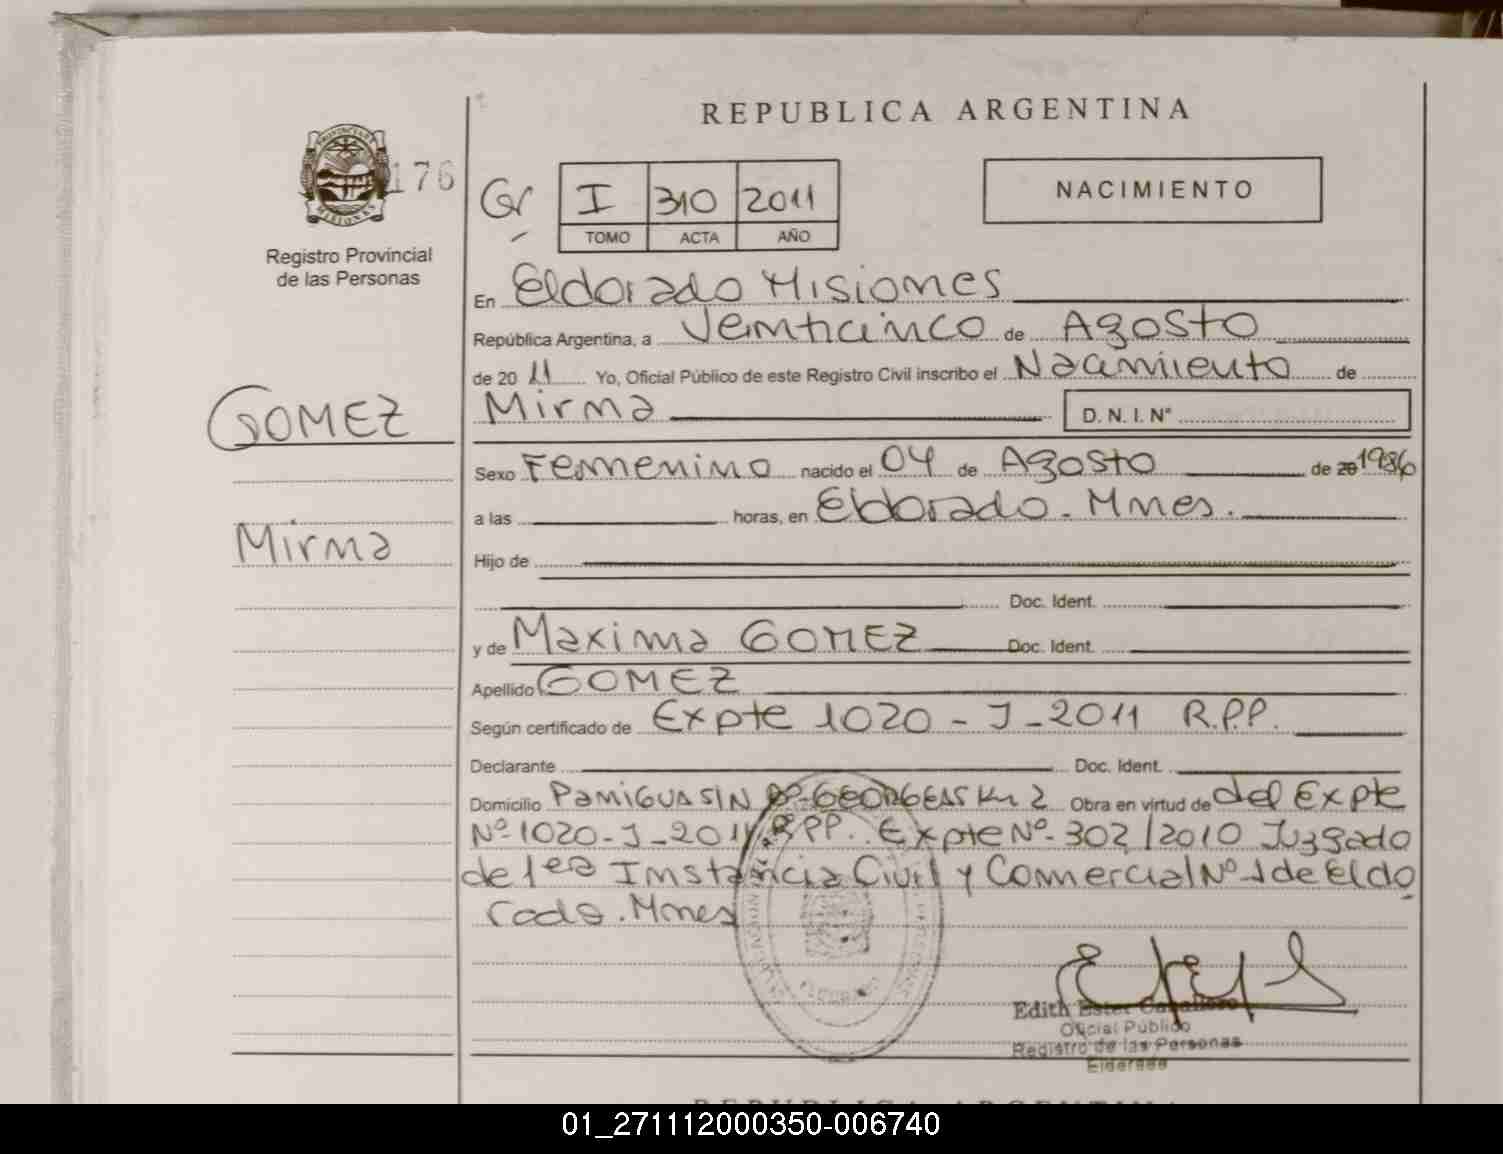 REPUBLICA ARGENTINA
PROVINCIA
MISIONES
176
Registro Provincial
de las Personas
Gr I 310 2011
TOMO ACTA AÑO
NACIMIENTO
En Eldorado Misiones
República Argentina, a Veinticinco de Agosto
de 2011 Yo, Oficial Público de este Registro Civil inscribo el Nacimiento de
GOMEZ
Mirna D. N. I. N°
Sexo Femenino nacido el 04 de Agosto de 20 1986
a las horas, en Eldorado. Mnes.
Mirna
Hijo de
Doc. Ident.
y de Maxima GOMEZ Doc. Ident.
Apellido GOMEZ
Según certificado de Expte 1020 - J - 2011 R.P.P.
Declarante Doc. Ident.
Domicilio Km 2 Obra en virtud de del Expte
Nº 1020-J-2011 R.P.P. Expte Nº 302/2010 Juzgado
de 1era Instancia Civil y Comercial Nº 1 de Eldo
rado. Mnes
Edith Ester Caballero
Oficial Público
Registro de las Personas
Eldorado
REPUBLICA ARGENTINA
01_271112000350-006740